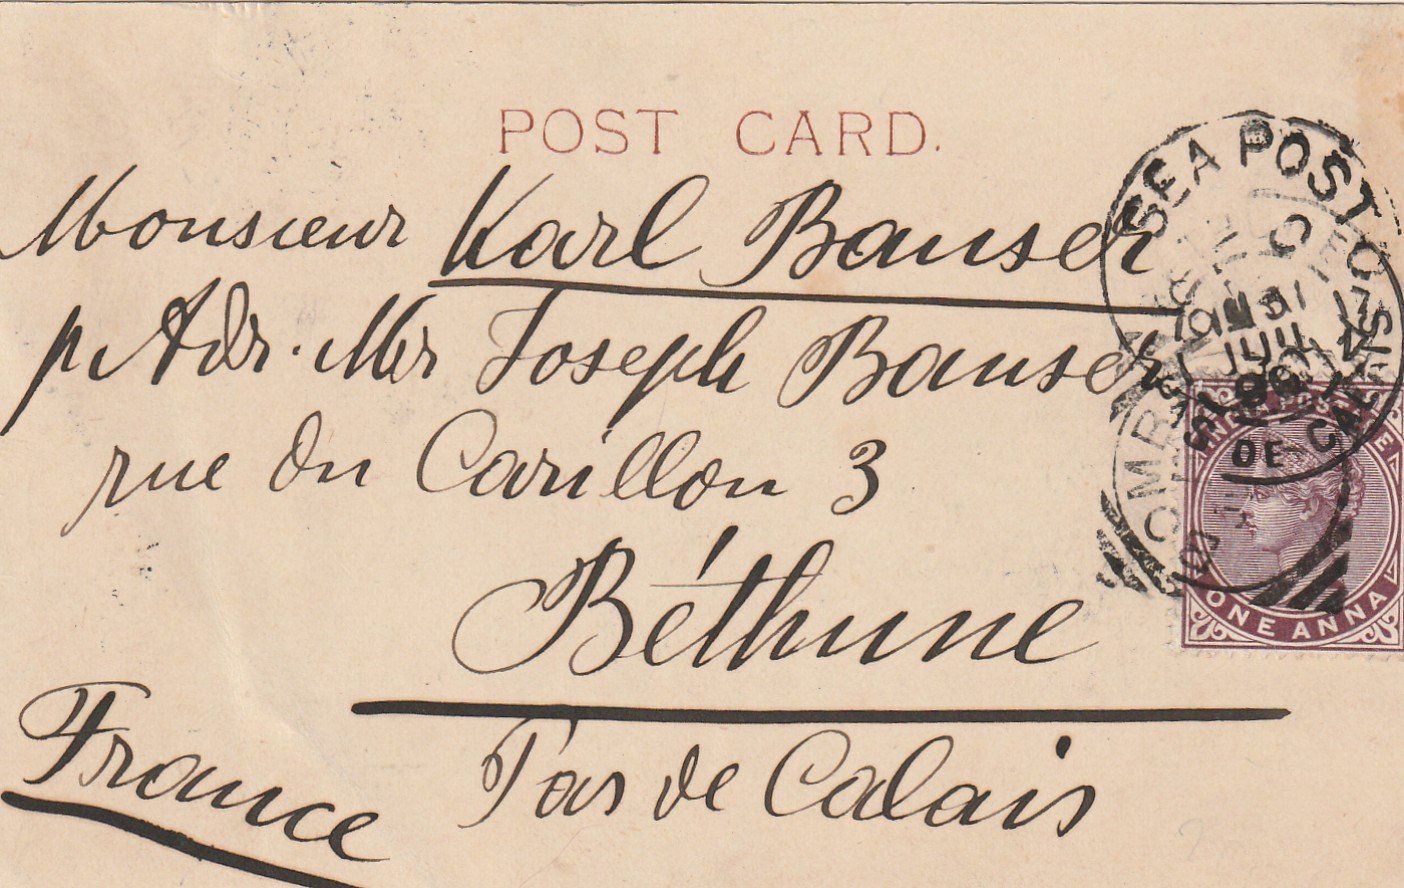 POST CARD.
Monsieur Karl Bauser
p Adr. Mr Joseph Bauser
rue du Carillon 3
Béthune
Pas de Calais
France
SEA POST O
JUL
99
INDIA POSTAGE
ONE ANNA